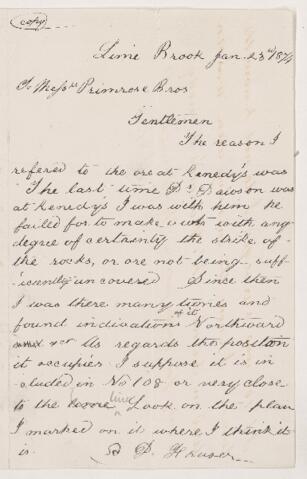 (copy)
Lime Brook Jan. 23rd 1874
To Messrs Primrose Bros
Gentlemen
The reason I
refered to the ore at Kenedy's was
The last time Dr. Dawson was
at Kenedy's I was with him he
failed for to make out with any
degree of certainty the strike of
the rocks, or ore not being suff-
iciently uncovered Since then
I was there many times and
found indications of it Northward
As regards the position
it occupies I suppose it is in
cluded in No 108 or very close
to the line Look on the plan
I marked on it where I think it
is. D. Fraser